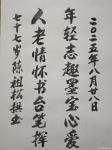 二〇二五年八月廿八日
年轻志趣墨宝心爱
人老情怀书台笔挥
七十七岁陈祖松撰并书